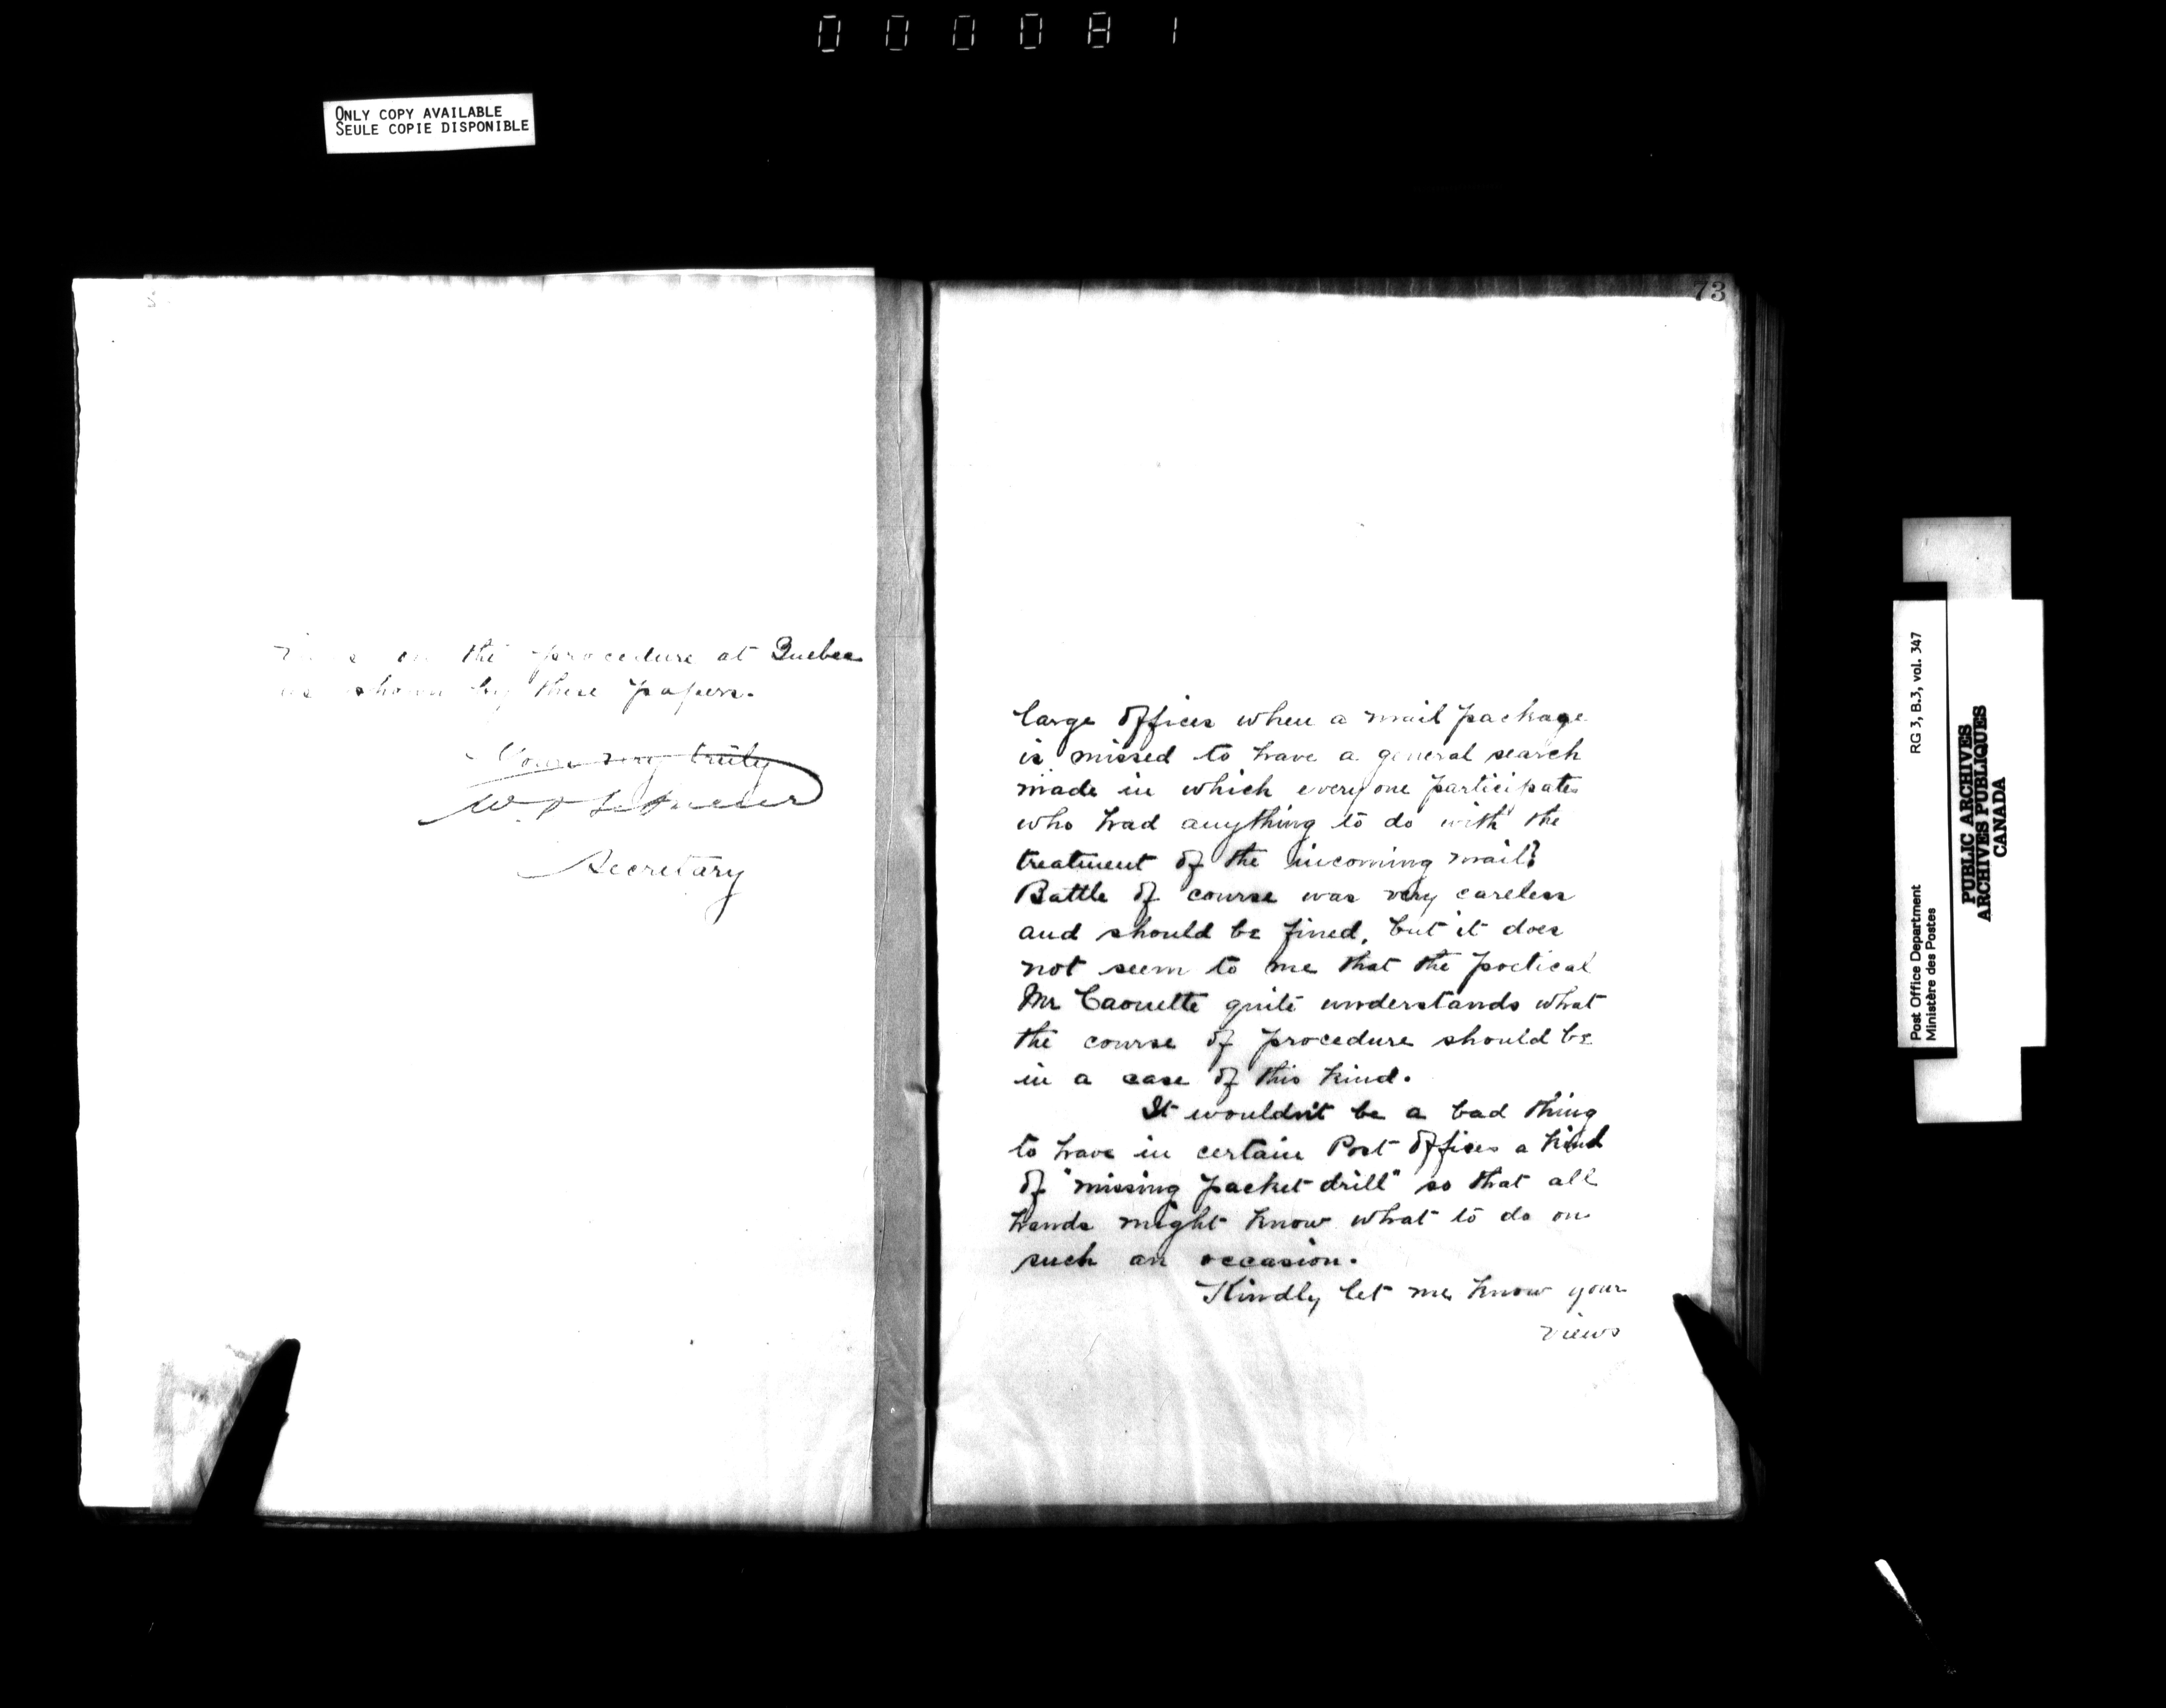 000081
ONLY COPY AVAILABLE
SEULE COPIE DISPONIBLE
views on the procedure at Quebec
as shown by these papers.
Yours very truly
Secretary
73
large offices when a mail package
is missed to have a general search
made in which everyone participates
who had anything to do with the
treatment of the incoming mail?
Battle of course was very careless
and should be fined, but it does
not seem to me that the poetical
Mr Caouette quite understands what
the course of procedure should be
in a case of this kind.
It wouldn't be a bad thing
to have in certain Post Offices a kind
of "missing packet drill" so that all
hands might know what to do on
such an occasion.
Kindly let me know your
views
Post Office Department
Ministère des Postes
RG 3, B.3, vol. 347
PUBLIC ARCHIVES
ARCHIVES PUBLIQUES
CANADA